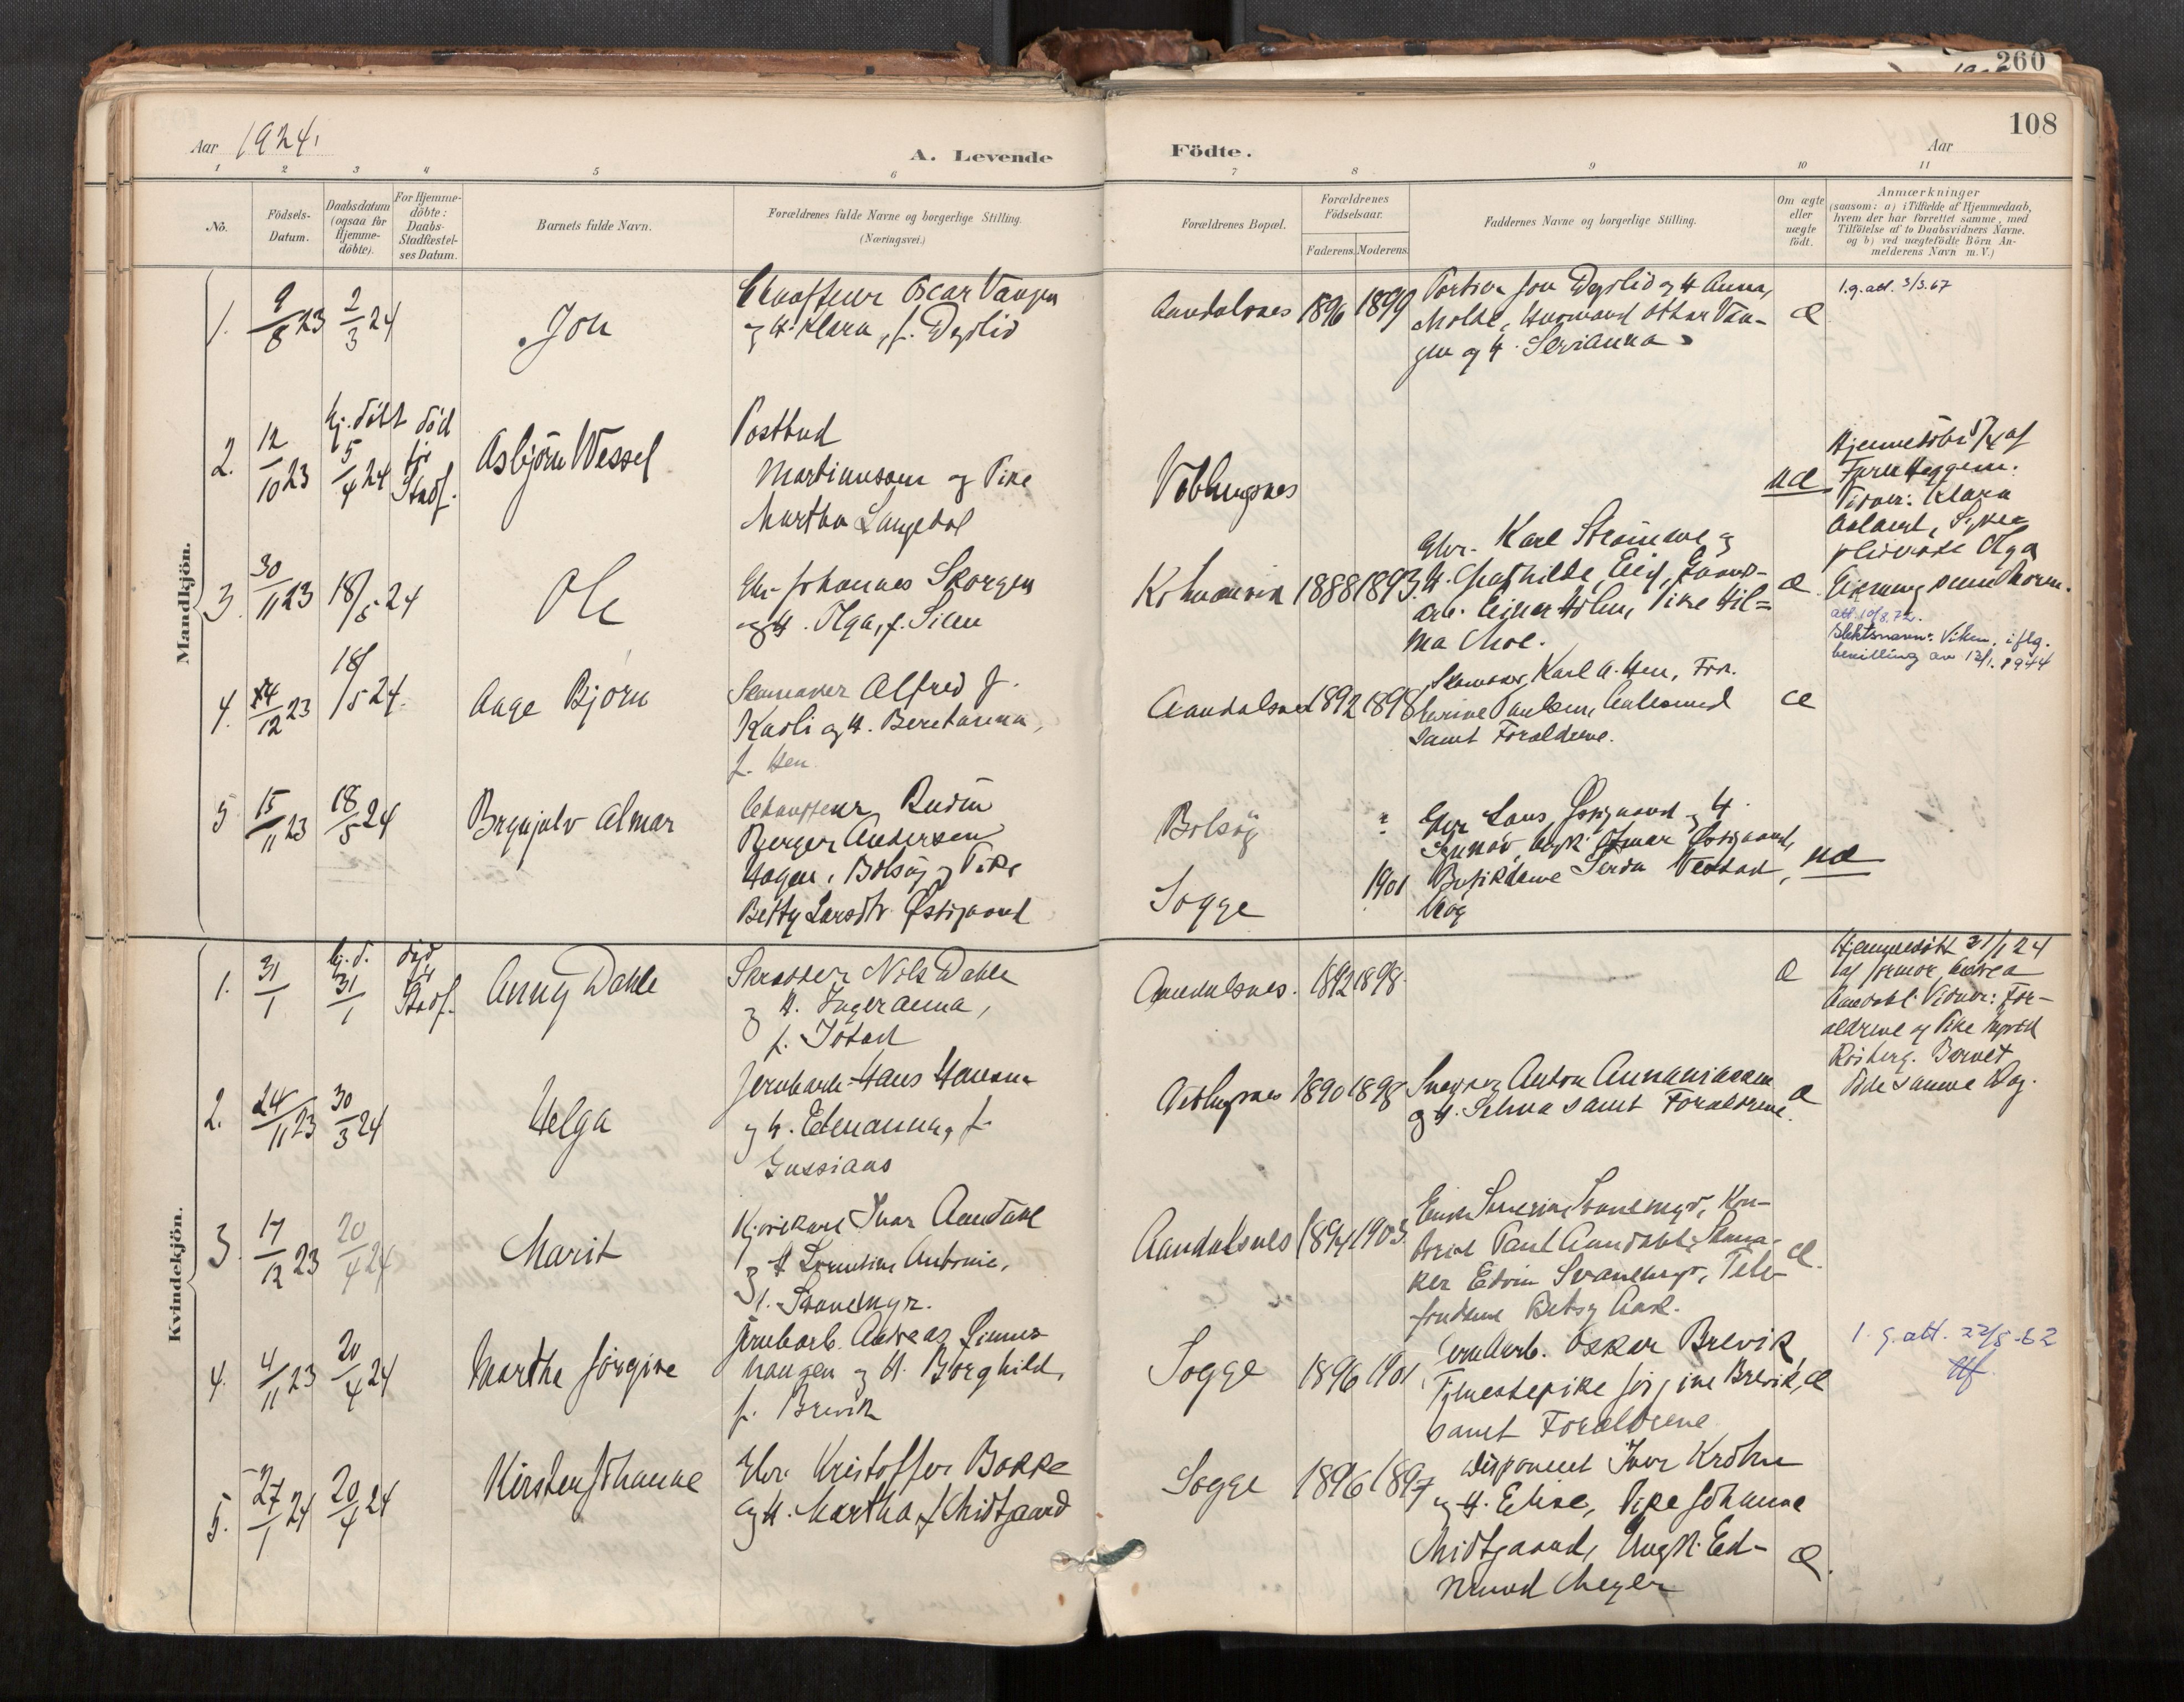 260
108
Aar 1924.
A. Levende
Födte.
Aar
1 2 3 4 5 6 7 8 9 10 11
No.
Födsels-
Datum.
Daabsdatum
(ogsaa for
Hjemme-
döbte).
For Hjemme-
döbte:
Daabs-
Stadfæstel-
ses Datum.
Barnets fulde Navn.
Forældrenes fulde Navne og borgerlige Stilling.
(Næringsvei.)
Forældrenes Bopæl.
Forældrenes
Födselsaar.
Faderens. Moderens.
Faddernes Navne og borgerlige Stilling.
Om ægte
eller
uægte
födt.
Anmærkninger
(saasom: a) i Tilfælde af Hjemmedaab,
hvem der har forrettet samme, med
Tilföielse af to Daabsvidners Navne.
og b) ved uægtefödte Börn An-
melderens Navn m. V.)
Mandkjön.
1. 9/8 23 2/3 24
Jon
Chauffeur Oscar Vangen
og H. Klara, f. Dyrlid
Aandalsnes 1896 1899
Portier Jon Dyrlid og H. Anna,
Molde, Husmand Ottar Van-
gen og H. Serianna
æ
1.g.att. 3/3.67
2. 12/10 23
hj. döbt
5/4 24
död
för
Stadf.
Asbjörn Wessel
Postbud
Martinusen og Pike
Martha Langedal
Veblungsnes
uæ
Hjemmedöbt 5/4 af
Vidner: Klara
pleierske Olga
3. 30/11 23 18/5 24
Ole
Gbr. Johannes Skorgen
og H. Olga, f. Silen
Kolmannvik 1888 1893
Gbr. Karl Steinare og
H. Mathilde, Eid, Gaards-
arb. Einar Holm, Pike Hil-
ma Moe.
æ
att. 10/8.72.
Slektsnavn: Viken, iflg.
bevilling av 13/1.1944
4. 14/12 23 18/5 24.
Aage Björn
Skomaker Alfred J.
Kavli og H. Beretanna,
f. Hen
Aandalsnes 1892 1898
Skomaker Karl A. Hen, Frk.
Paulsen, Aalesund
samt Forældrene.
æ
5 15/11 23 18/5 24
Brynjulv Almar
Chauffeur Budin
Berger Andersen
Hagen, Bolsöy og Pike
Betty Larsdtr Östigaard
Bolsöy "
Sogge 1901
Gbr Lars Östigaard og H.
Synnöv, Ungk. Östigaard,
Butikdame Vestad,
Aag
uæ
Kvindekjön.
1. 31/1
hj. d.
31/1
död
för
Stadf.
Anny Dahle
Skrædder Nils Dahle
og H. Inger Anna,
f. Istad
Aandalsnes. 1892 1898.
æ
Hjemmedöbt 31/1 24
af Jormor Andrea
Aandahl. Vidner: For-
ældrene og Pike Ingrid
Rösberg. Barnet
döde samme Dag.
2. 24/11 23 30/3 24
Helga
Jernbarb. Hans Hansen
og H. Edelanna, f.
Gussiaas
Veblungsnes 1890 1898
Snekker Anton Annaniassen
og H. Selma samt Forældrene.
æ
3. 17/12 23 20/4 24
Marit
Kjörekarl Ivar Aandahl
og H. Lorentine Antonie,
f. Svanemyr.
Aandalsnes 1894 1903
Enke Severine Svanemyr, Kon-
torist Paul Aandahl, Skoma-
ker Edvin Svanemyr, Tele-
fondame Betsy Aak.
æ.
4. 4/11 23 20/4 24
Martha Jörgine
Jernbarb. Andreas
haugen og H. Borghild,
f. Brevik
Sogge 1896 1901
Jernbarb. Oskar Brevik,
Tjenestepike Jörgine Brevik,
samt Forældrene
æ
1. g. att. 22/8-62
5. 27/1 24 20/4 24
Kirsten Johanne
Gbr. Kristoffer Bakke
og H. Martha, f. Midtgaard
Sogge 1896 1897
Disponent Iver Krohn
og H. Elise, Pike Johanne
Midtgaard, Ungk. Ed-
mund Meyer
æ.